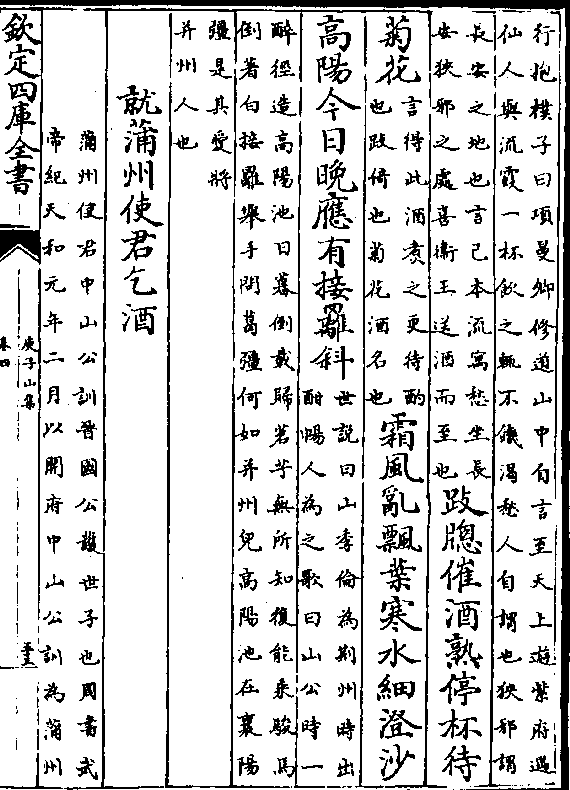 行抱樸子曰項曼卿修道山中自言至天上遊紫府遇
仙人與流霞一杯飲之輒不饑渴愁人自謂也狹邪謂
長安之地也言己本流寓愁坐長
安狹邪之處喜衛王送酒而至也
跂牕催酒熟停杯待
菊花
言得此酒煑之更待酌
也跂倚也菊花酒名也
霜風亂飄葉寒水細澄沙
高陽今日晚應有接䍦斜
世說曰山季倫為荆州時出
酣暢人為之歌曰山公時一
醉徑造高陽池日暮倒載歸茗艼無所知復能乘駿馬
倒著白接䍦舉手問葛彊何如并州兒高陽池在襄陽
彊是其愛將
并州人也
就蒲州使君乞酒
蒲州使君中山公訓晉國公護世子也周書武
帝紀天和元年二月以開府中山公訓為蒲州
欽定四庫全書
庾子山集
卷四